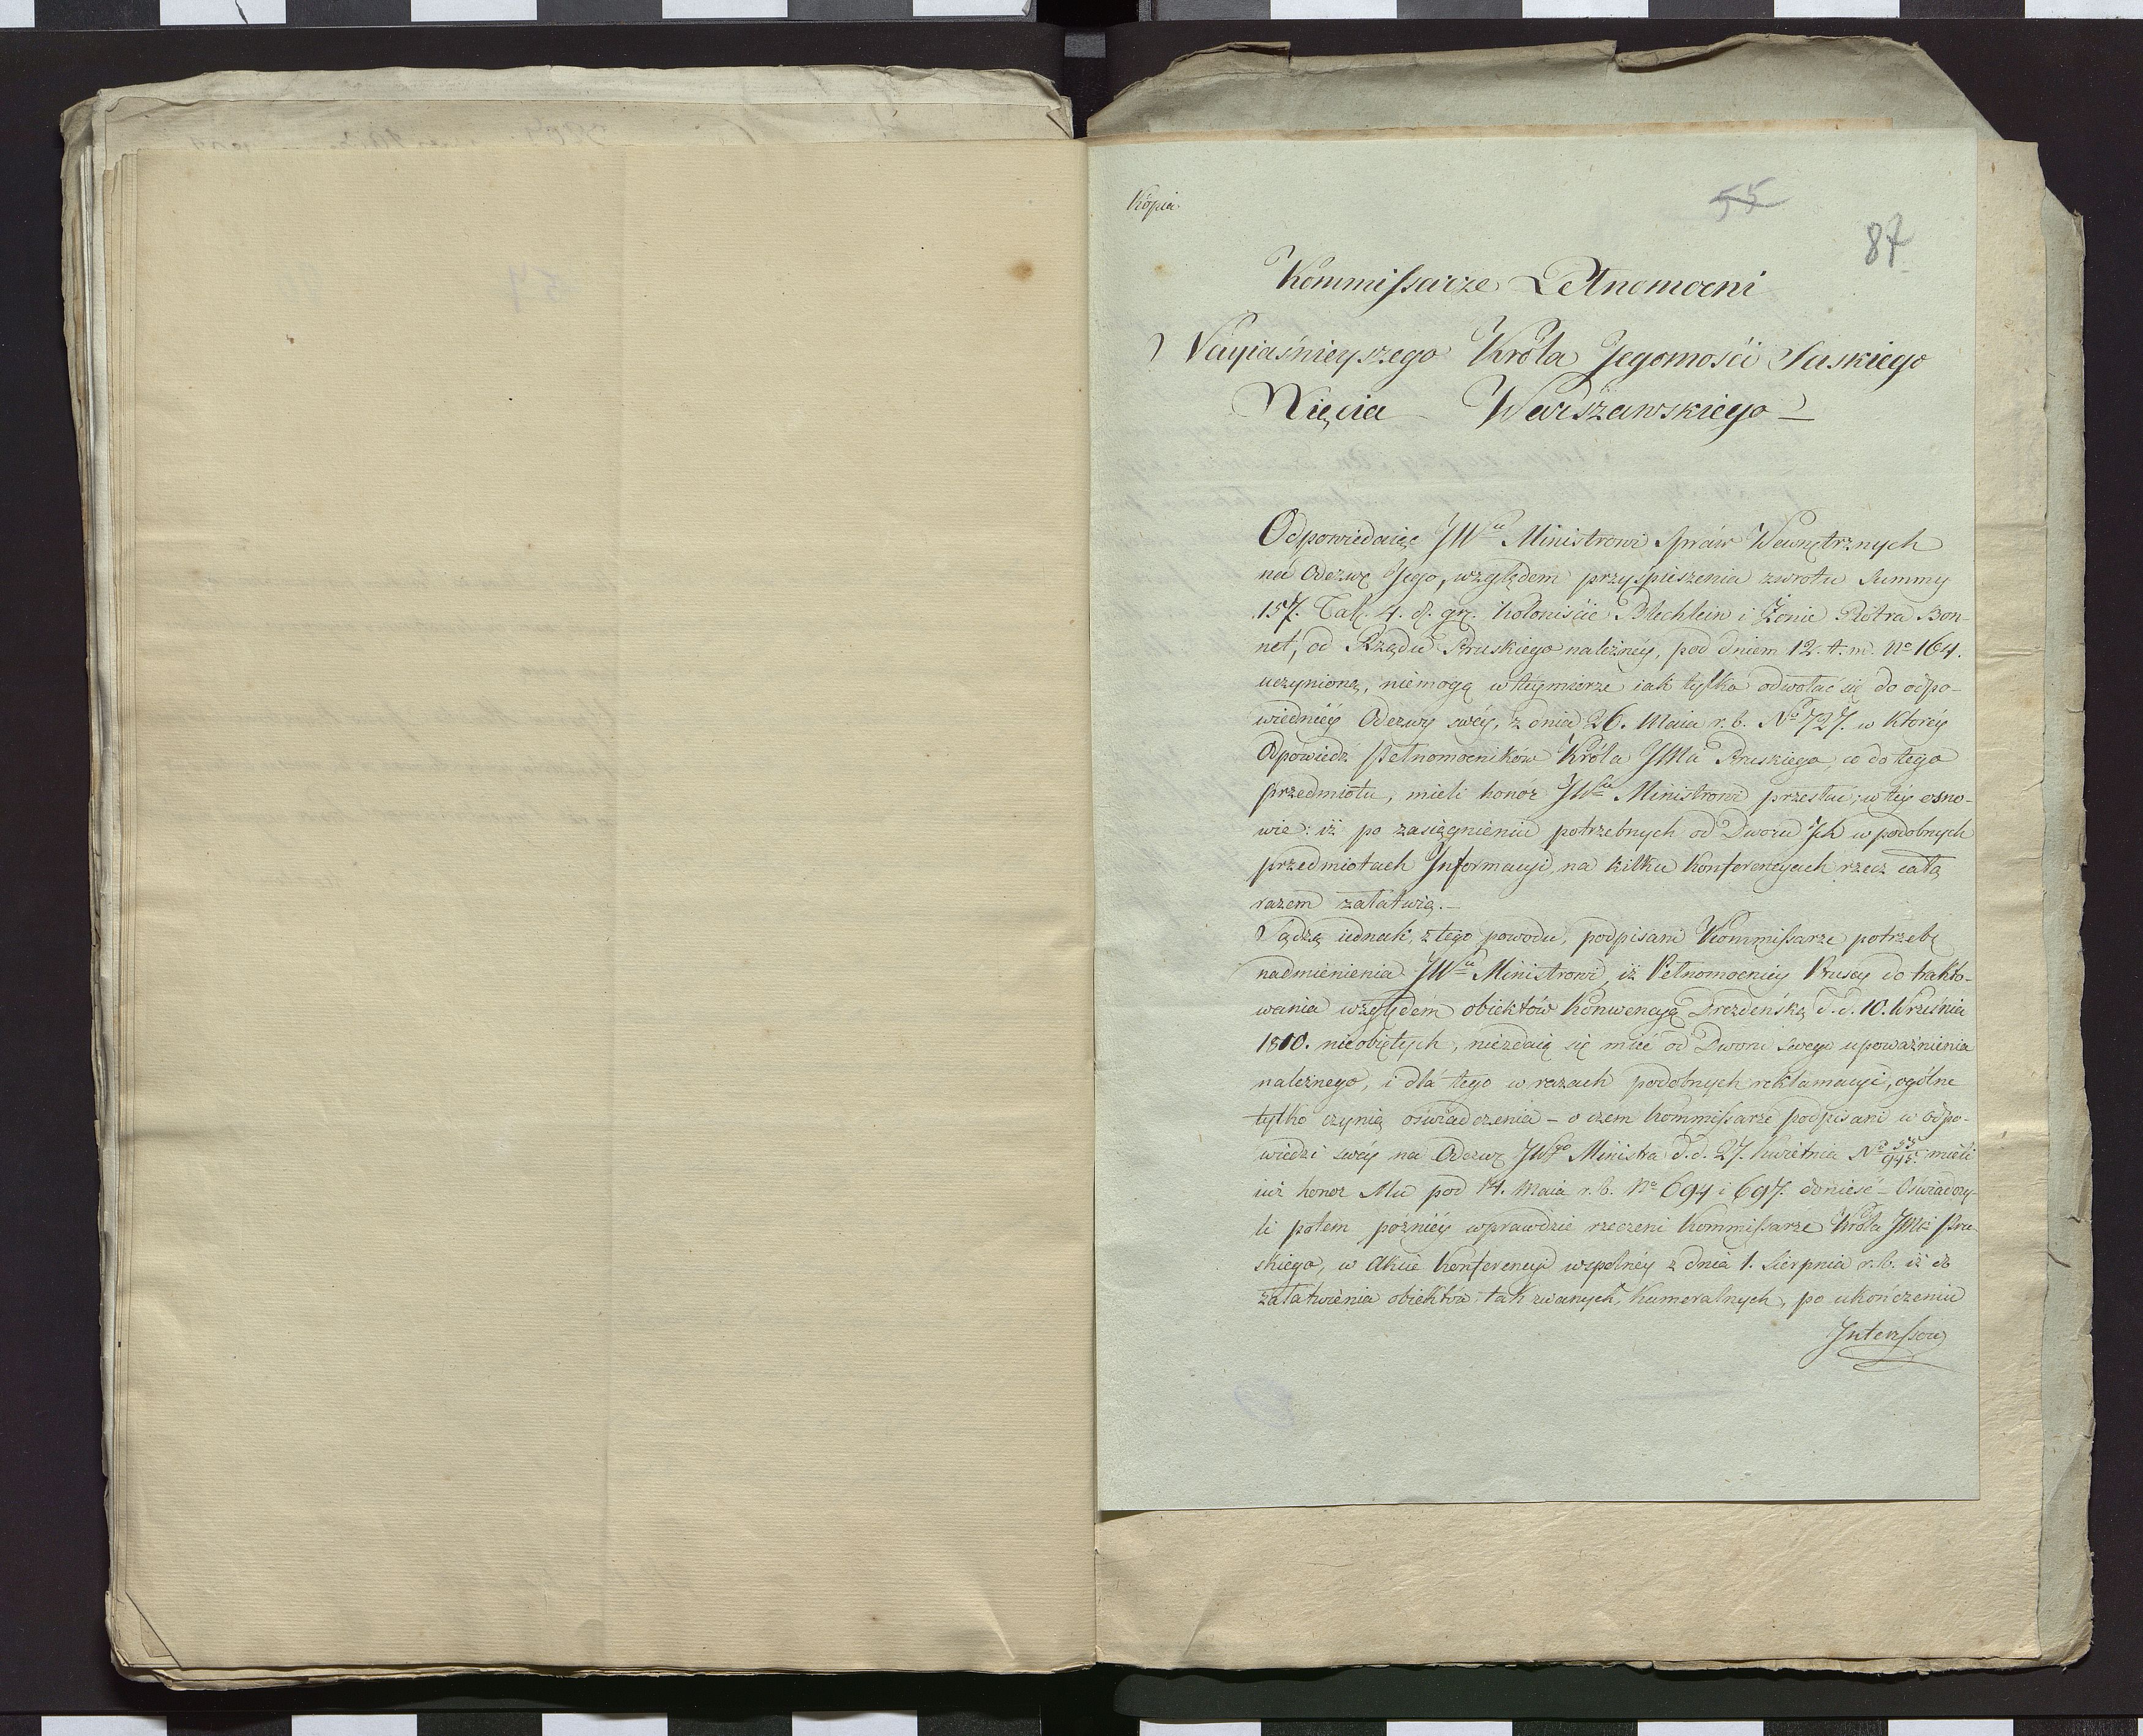 Kopia.
55
87
Kommissarze Pełnomocni
Nayiaśnieyszego Króla Jegomości Saskiego
Xięcia Warszawskiego
Odpowiedaiąc JWu Ministrowi Spraw Wewnętrznych
na Odezwę Jego, względem przyspieszenia zwrotu Summy
157. Tal. 4. d. gr. Koloniście Blechlein i Żonie Piotra Bon-
net, od Rządu Pruskiego należnéy, pod dniem 12. t. m. No 164.
uczynioną, niemogą w téymierze iak tylko odwołać się do odpo-
wiednéy Odezwy swéy, z dnia 26. Maia r. b. No 727. w któréy
Odpowiedź Pełnomocników Króla JMci Pruskiego, co do tego
przedmiotu, mieli honór JWu Ministrowi przesłać; w téy osno-
wie: iż po zasięgnieniu potrzebnych od Dworu Ich w podobnych
przedmiotach Informacyi, na kilku Konferencyach rzecz całą
razem załatwią.—
Sądzą iednak, z tego powodu, podpisani Kommissarze potrzebę
nadmienienia JWu Ministrowi, iż Pełnomocnicy Pruscy do trakto-
wania względem obiektów Konwencyą Drezdeńską d. d. 10. Września
1810. nieobiętych, niezdaią się mieć od Dworu swego upoważnienia
należnego, i dla tego w razach podobnych reklamacyi, ogólne
tylko czynią oświadczenia – o czem Kommissarze podpisani w odpo-
wiedzi swéy na Odezwę JWgo Ministra d. d. 27. Kwietnia No 55/945. mieli
iuż honor Mu pod 14. Maia r. b. No 694 i 697. donieść – Oświadczy-
li potem poźniéy wprawdzie rzeczeni Kommissarze Króla JMci Pru-
skiego, w Akcie Konferencyi wspólnéy z dnia 1. Sierpnia r. b. iż do
załatwienia obiektów, tak zwanych, Kameralnych, po ukończeniu
Interessów